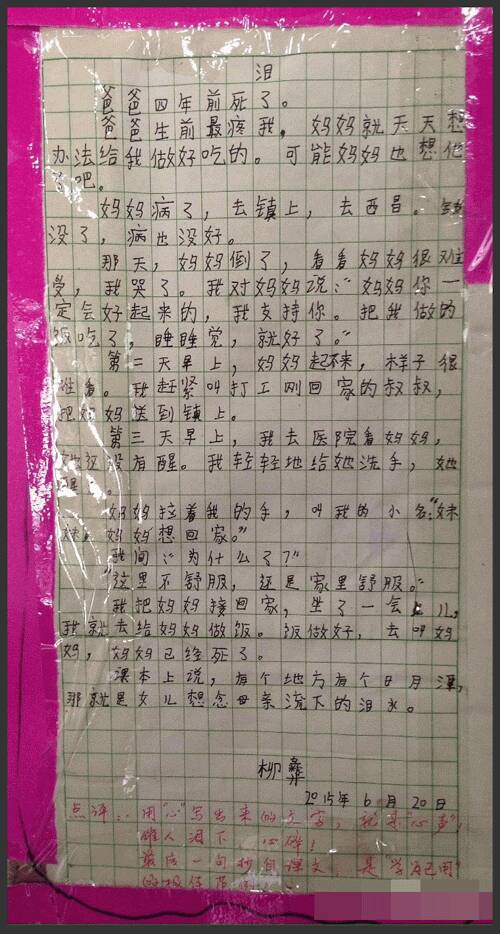 泪
爸爸四年前死了。
爸爸生前最疼我，妈妈就天天想
办法给我做好吃的。可能妈妈也想他
了吧。
妈妈病了，去镇上，去西昌。钱
没了，病也没好。
那天，妈妈倒了，看看妈妈很难
受，我哭了。我对妈妈说：“妈妈你一
定会好起来的，我支持你。把我做的
饭吃了，睡睡觉，就好了。”
第二天早上，妈妈起不来，样子很
难看。我赶紧叫打工刚回家的叔叔，
把妈妈送到镇上。
第三天早上，我去医院看妈妈，
她还没有醒。我轻轻地给她洗手，她
醒了。
妈妈拉着我的手，叫我的小名：“妹
妹，妈妈想回家。”
我问：“为什么了？”
“这里不舒服，还是家里舒服。”
我把妈妈接回家，坐了一会儿，
我就去给妈妈做饭。饭做好，去叫妈
妈，妈妈已经死了。
课本上说，有个地方有个日月潭，
那就是女儿想念母亲流下的泪水。
柳彝
2015年6月20日
点评：用“心”写出来的文字，就是“心声”，
催人泪下 心碎！
最后一句抄自课文，是“学为己用”
的极佳范例